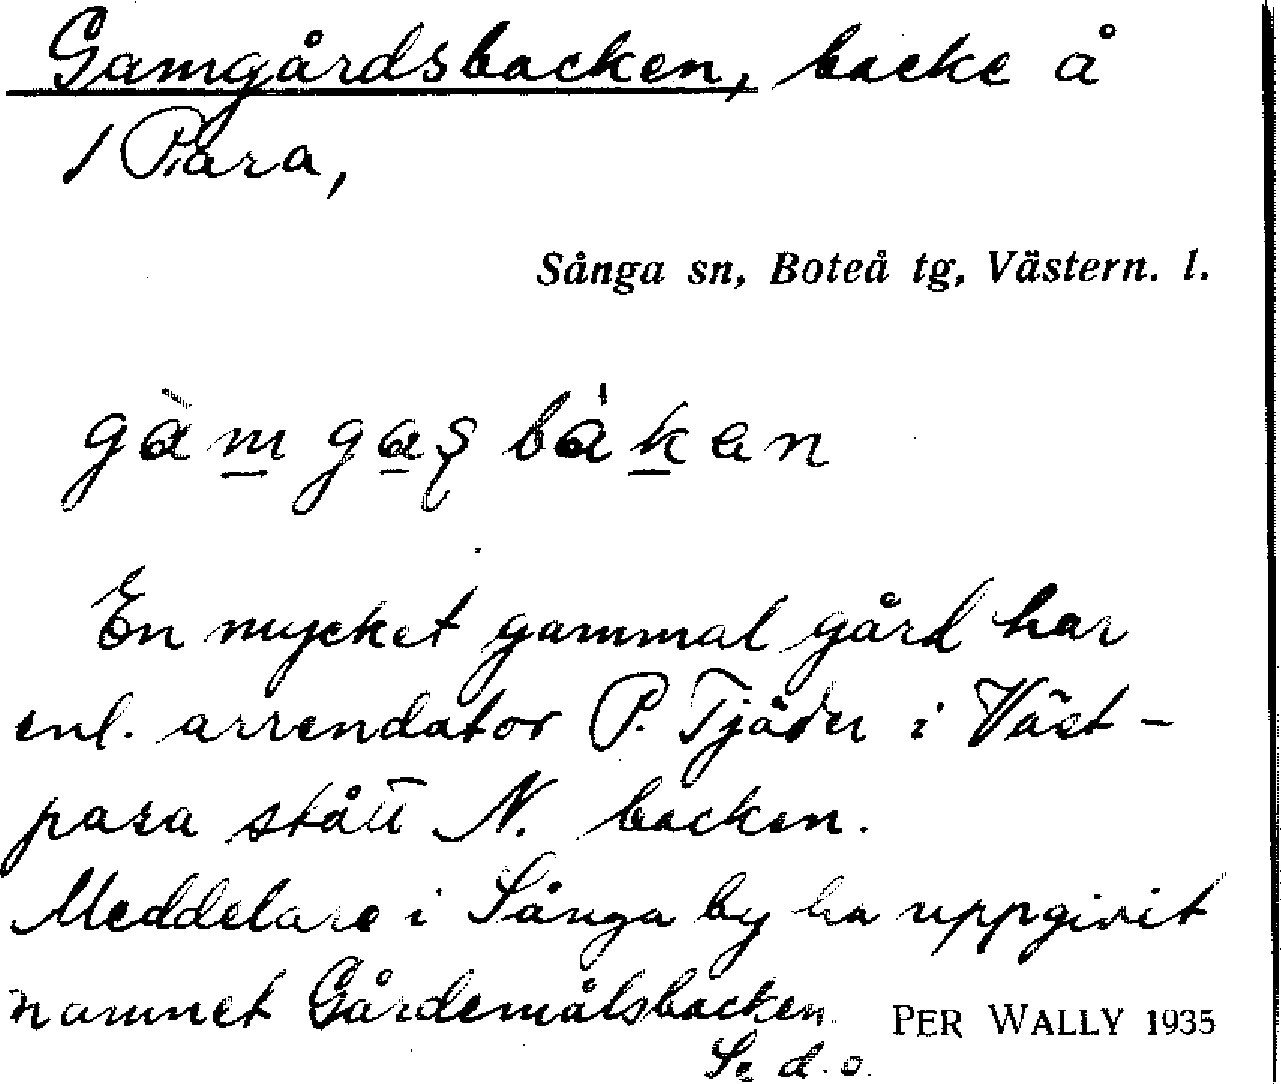 Gamgårdsbacken, backe å
1 Para,
Sånga sn, Boteå tg, Västern. l.
gàm gaş bákan
En mycket gammal gård har
enl. arrendator P. Tjäder i Väst-
para stått N. backen.
Meddelare i Sånga by ha uppgivit
namnet Gårdemålsbacken
PER WALLY 1935
Se d.o.